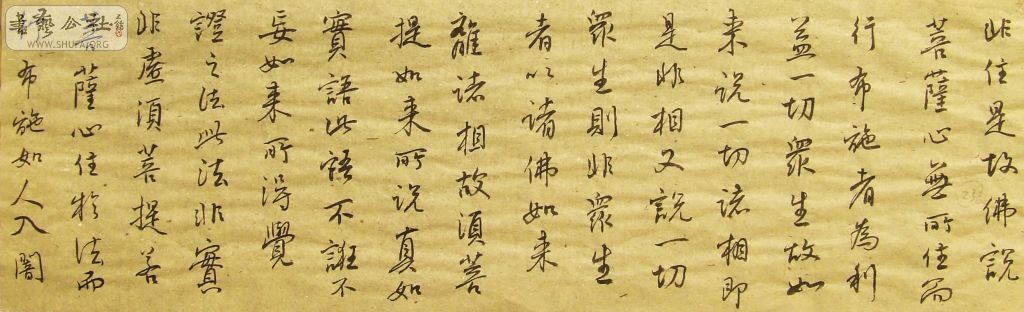 非住是故佛說
菩薩心無所住而
行布施者為利
益一切眾生故如
来說一切諸相即
是非相又說一切
眾生則非眾生
者以諸佛如来
離諸相故須菩
提如来所說真如
實語此語不誑不
妄如来所得覺
證之法此法非實
非虛須菩提若
菩薩心住於法而
布施如人入闇
書藝公社
WWW.SHUFA.ORG